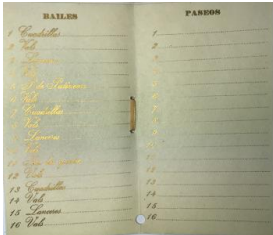 BAILES
1 Cuadrillas
2 Vals
3 Lanceros
4
5
6 Vals
7 Cuadrillas
8 Vals
9 Lanceros
10 Vals
11
12 Vals
13 Cuadrillas
14 Vals
15 Lanceros
16 Vals
PASEOS
1
2
3
4
5
6
7
8
9
10
11
12
13
14
15
16